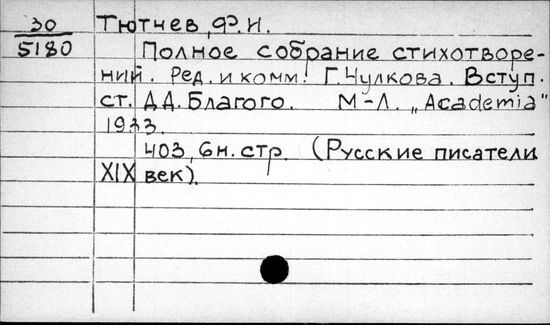 30
5180
Тютчев, Ф.И.
Полное собрание стихотворе-
ний. Ред. и комм. Г. Чулкова. Вступ.
ст. Д.Д. Благого. М-Л. „Academia"
1933.
403, 6 н. стр. (Русские писатели
XIX век).